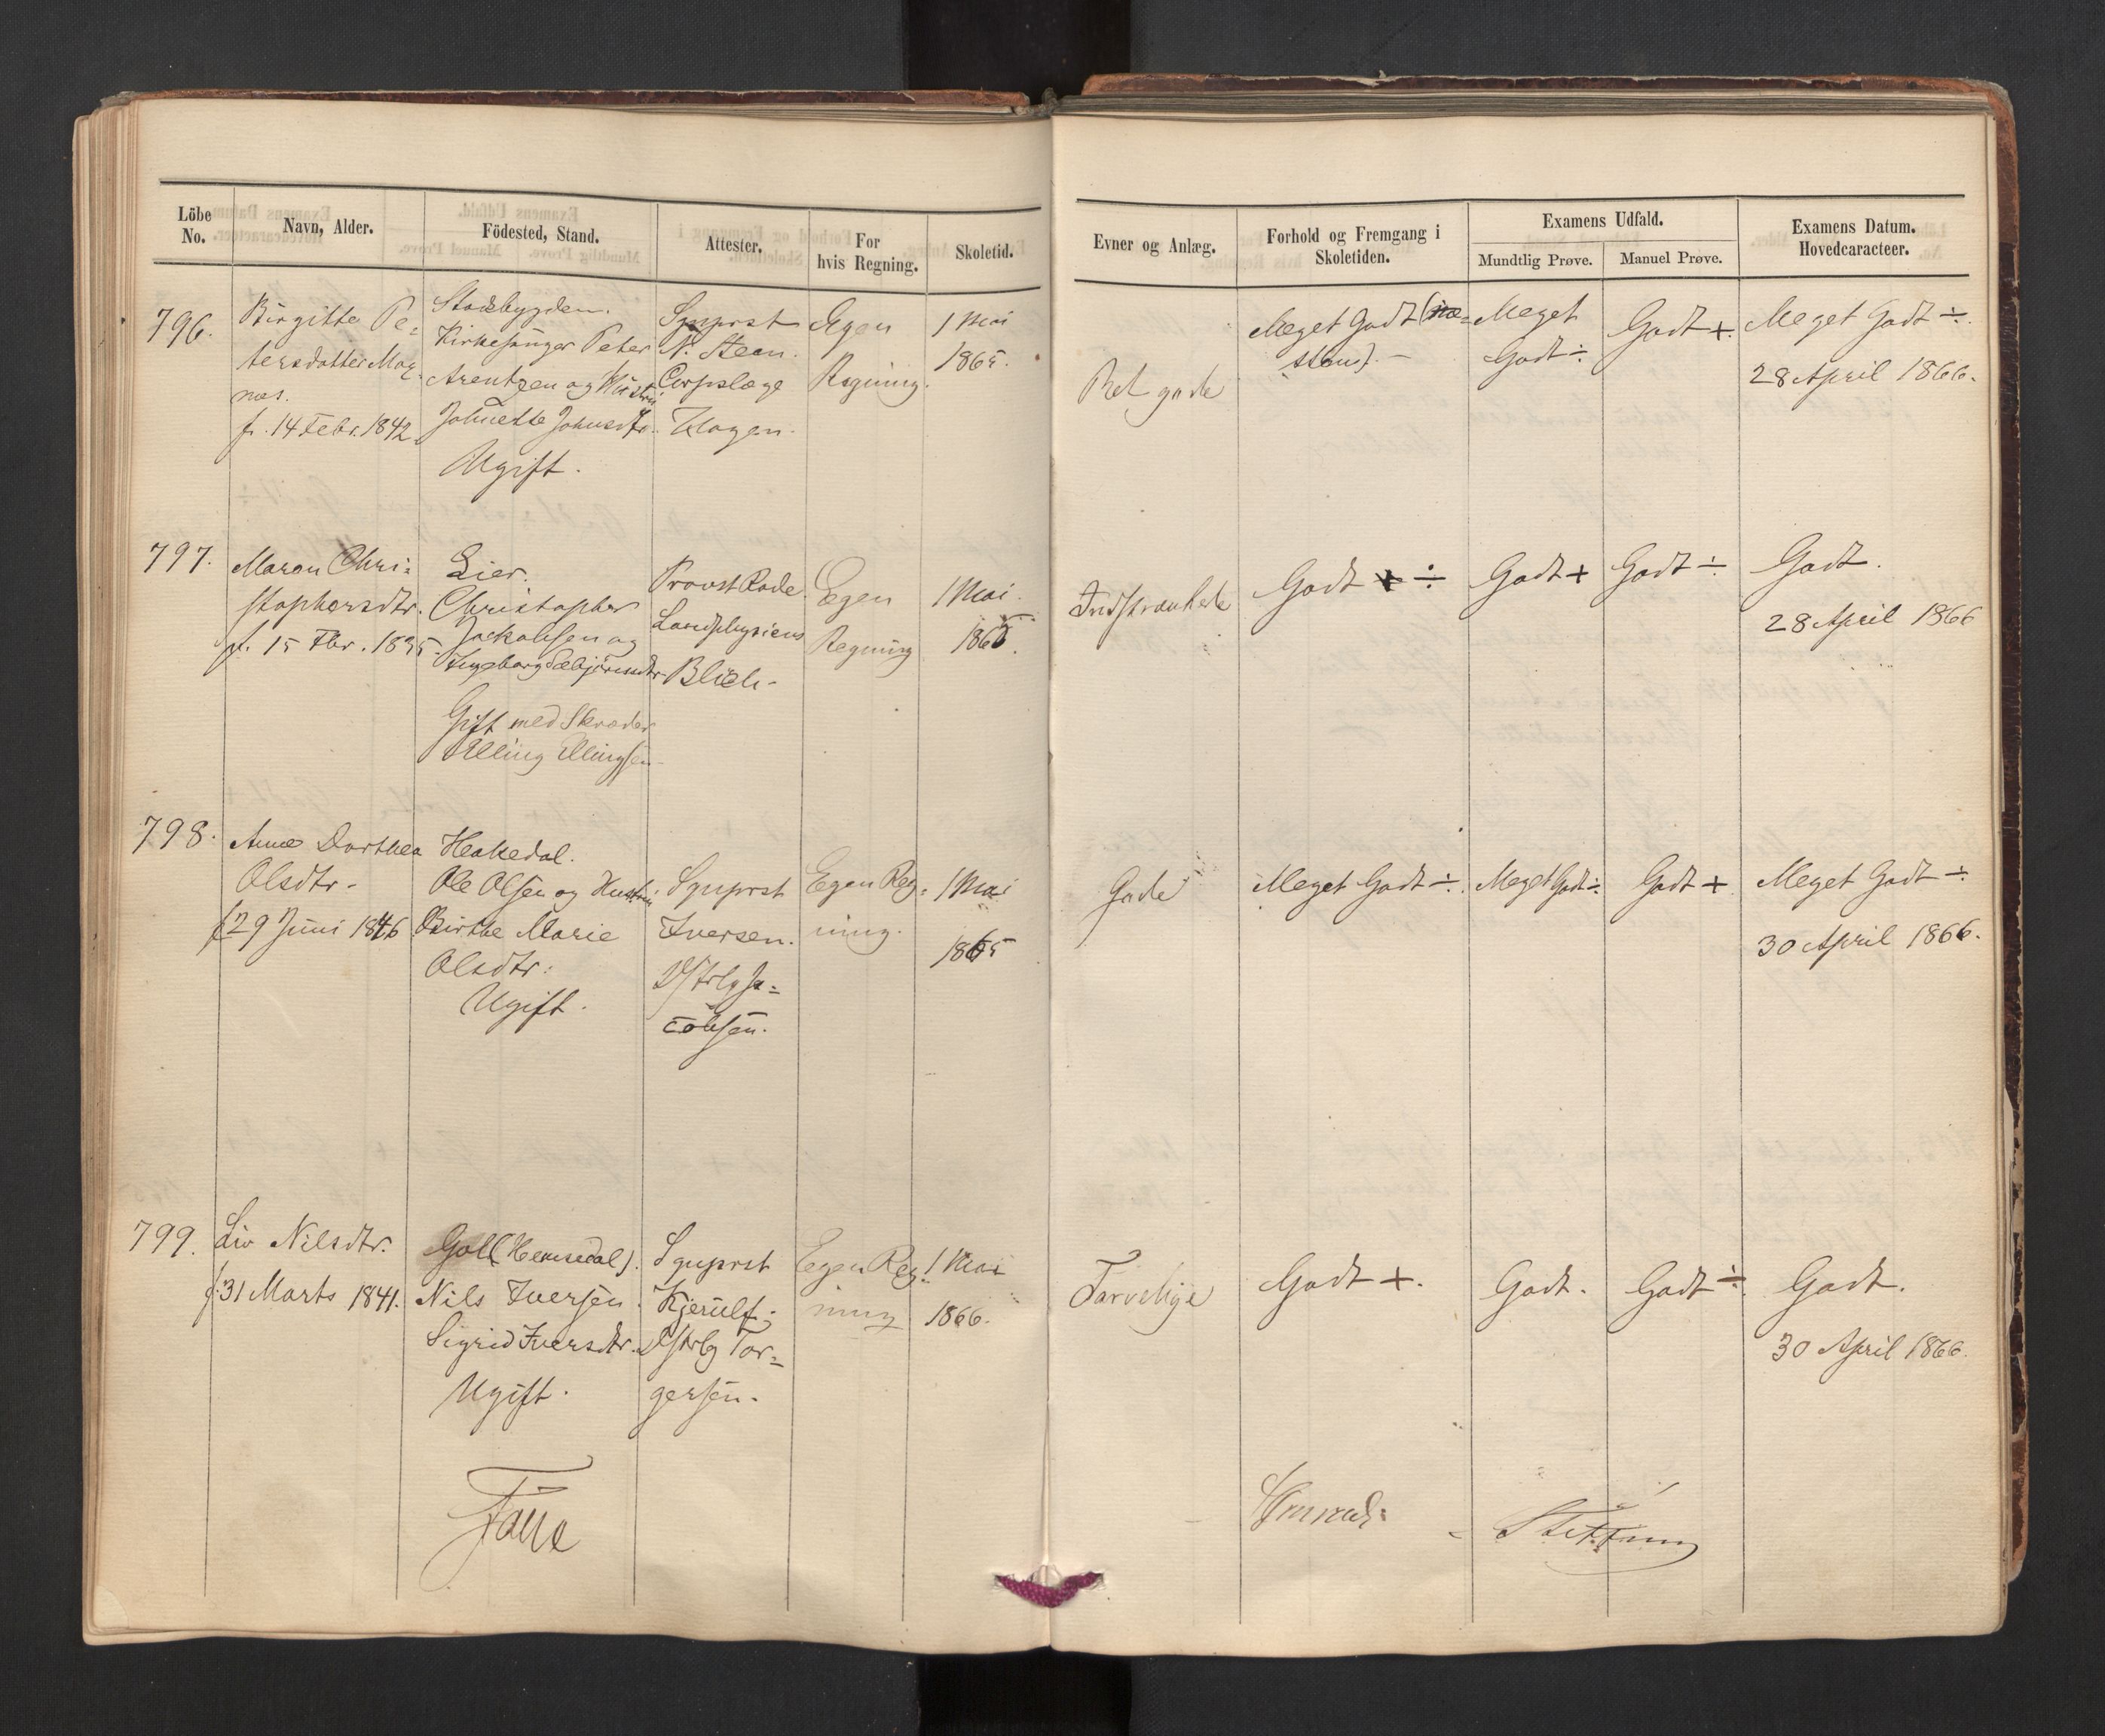 Löbe No.
Navn, Alder.
Födested, Stand.
Attester.
For hvis Regning.
Skoletid.
Evner og Anlæg.
Forhold og Fremgang i Skoletiden.
Examens Udfald.
Mundtlig Prøve.
Manuel Prøve.
Examens Datum.
Hovedcaracteer.
796.
Birgitte Pe-
tersdatter Mag-
næs.
f. 14 Febr. 1842.
Stadsbygden.
Kirkesanger Peter
Arentzen og Hustru
Johnette Johnsdtr.
Ugift.
Sgnprst
N. Steen.
Corpslæge
Hagen.
Egen
Regning.
1 Mai
1865.
Ret gode
Meget Godt (næ-
stens). -
Meget
Godt ÷
Godt +.
Meget Godt ÷.
28 April 1866.
797.
Maren Chri-
stophersdtr.
f. 15 Fbr. 1835.
Lier.
Christopher
Jackobsen og
Ingeborg Torbjörnsdtr
Gift med Skræder
Elling Ellingsen
Provst Rode.
Landphysicus
Blich-
Egen
Regning
1 Mai.
1865.
Indskrænkede
Godt ÷
Godt +
Godt ÷
Godt.
28 April 1866
798.
Anne Dorthea
Olsdtr.
f 29 Juni 1846
Hakedal.
Ole Olsen og Hustru
Birthe Marie
Olsdtr:
Ugift.
Sgnprst
Iversen.
Dstrlg Ja-
cobsen.
Egen Reg-
ning.
1 Mai
1865
Gode
Meget Godt ÷.
Meget Godt ÷
Godt +
Meget Godt ÷
30 April 1866.
799.
Liv Nilsdtr.
f. 31 Marts 1841.
Goll (Hemsedal).
Nils Iversen.
Sigrid Iversdtr.
Ugift.
Sgnprst
Kjerulf;
Dstrlg Tor-
gersen.
Egen Reg-
ning
1 Mai
1866.
Tarvelige
Godt +.
Godt.
Godt ÷
Godt.
30 April 1866.
Faye